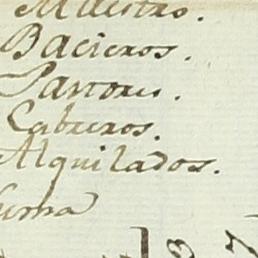 Maestro.
Bacieros.
Pastores.
Cabreros.
Alquilados.
Suma